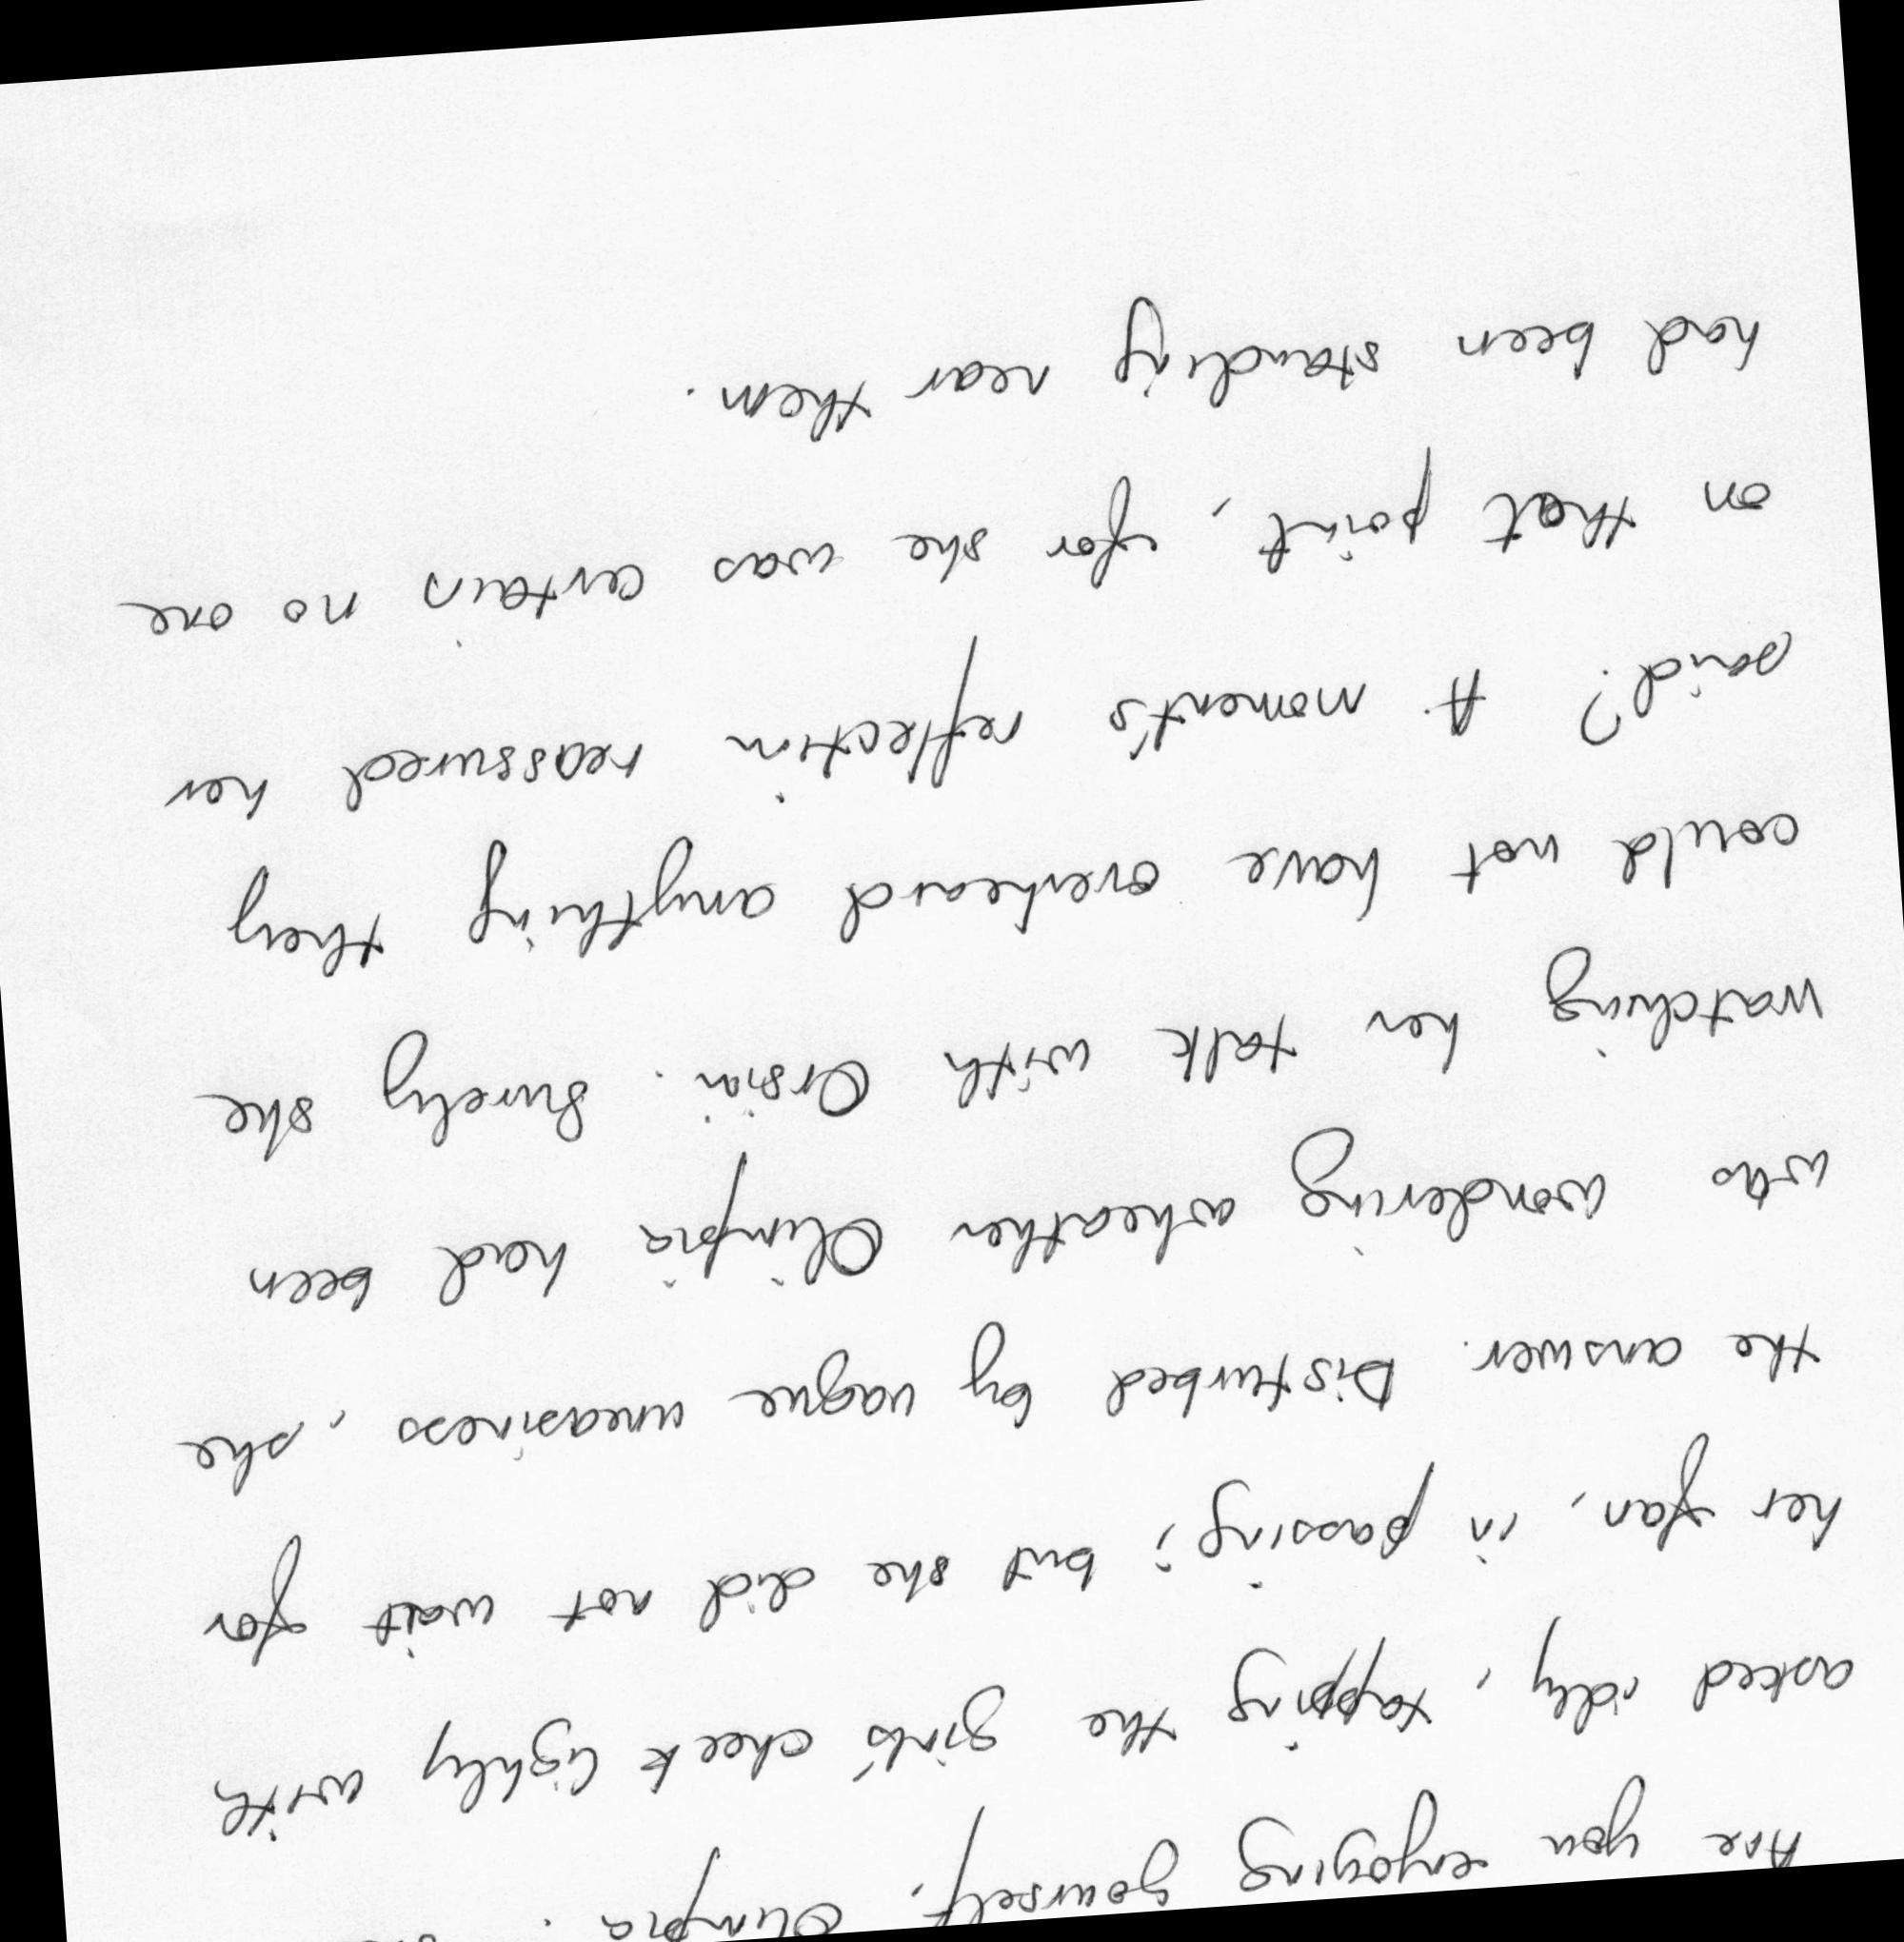 Are you enjoying yourself, Olimpia.
asked idly, tapping the girl's cheek lightly with
her fan, in passing; but she did not wait for
the answer. Disturbed by vague uneasiness, she
was wondering wheather Olimpia had been
watching her talk with Orsini. Surely she
could not have overheard anything they
said? A moment's reflection reassured her
on that point, for she was certain no one
had been standing near them.